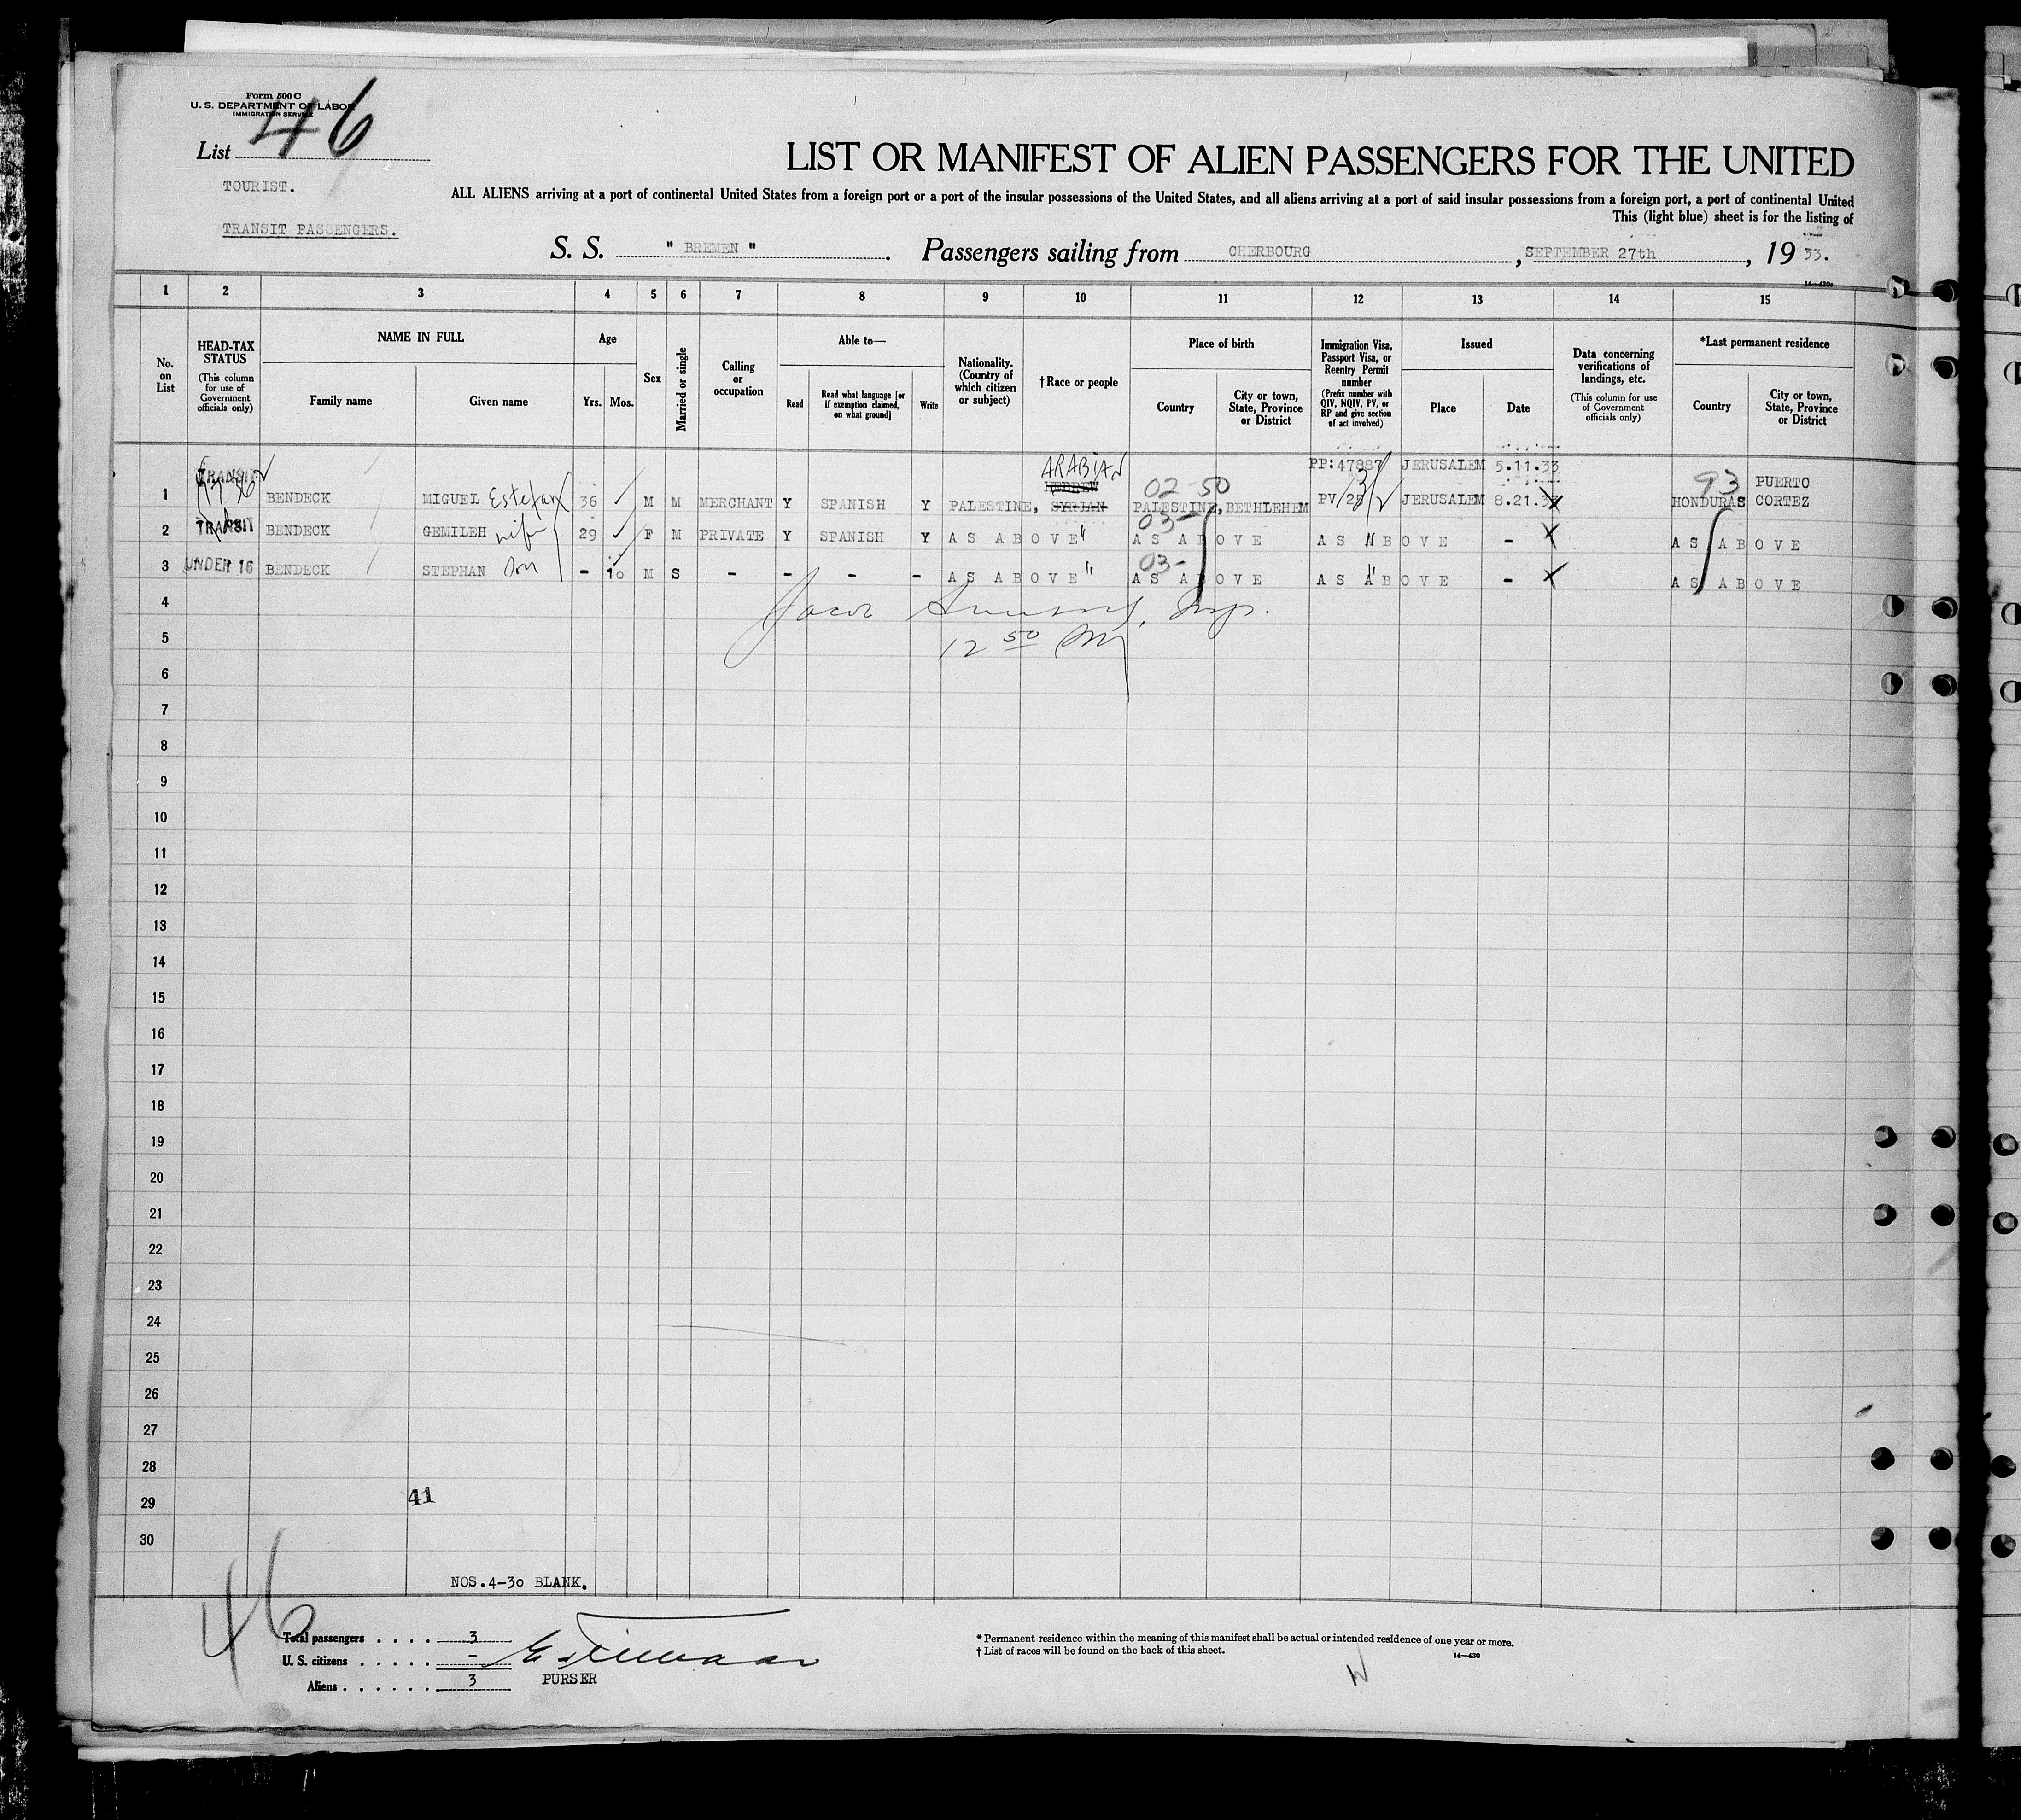 Form 500 C
U. S. DEPARTMENT OF LABOR
IMMIGRATION SERVICE
List 46
TOURIST.
TRANSIT PASSENGERS.
LIST OR MANIFEST OF ALIEN PASSENGERS FOR THE UNITED
ALL ALIENS arriving at a port of continental United States from a foreign port or a port of the insular possessions of the United States, and all aliens arriving at a port of said insular possessions from a foreign port, a port of continental United
This (light blue) sheet is for the listing of
S. S. " BREMEN " . Passengers sailing from CHERBOURG , SEPTEMBER 27th , 19 33.
14—430a
1 2 3 4 5 6 7 8 9 10 11 12 13 14 15
No. on List
HEAD-TAX STATUS
(This column for use of Government officials only)
NAME IN FULL
Family name
Given name
Age
Yrs. Mos.
Sex
Married or single
Calling or occupation
Able to—
Read
Read what language [or if exemption claimed, on what ground]
Write
Nationality. (Country of which citizen or subject)
†Race or people
Place of birth
Country
City or town, State, Province or District
Immigration Visa, Passport Visa, or Reentry Permit number
(Prefix number with QIV, NQIV, PV, or RP and give section of act involved)
Issued
Place
Date
Data concerning verifications of landings, etc.
(This column for use of Government officials only)
*Last permanent residence
Country
City or town, State, Province or District
TRANSIT ARABIAN PP:47887 JERUSALEM 5.11.33
HEBREW 02-50 3/2 93 PUERTO
1 BENDECK MIGUEL Estefan 36 M M MERCHANT Y SPANISH Y PALESTINE, SYRIAN PALESTINE, BETHLEHEM PV/28 JERUSALEM 8.21.33 HONDURAS CORTEZ
2 TRANSIT BENDECK GEMILEH wife 29 F M PRIVATE Y SPANISH Y AS ABOVE " 03- AS ABOVE AS ABOVE - AS ABOVE
3 UNDER 16 BENDECK STEPHAN son - 10 M S - - - - AS ABOVE " 03- AS ABOVE AS ABOVE - AS ABOVE
4
Jacob
5
12 50 PM
6
7
8
9
10
11
12
13
14
15
16
17
18
19
20
21
22
23
24
25
26
27
28
29 41
30
NOS.4-30 BLANK.
46
Total passengers . . . . 3
U. S. citizens . . . . . -
Aliens . . . . . . 3
PURSER
* Permanent residence within the meaning of this manifest shall be actual or intended residence of one year or more.
† List of races will be found on the back of this sheet.
14—430